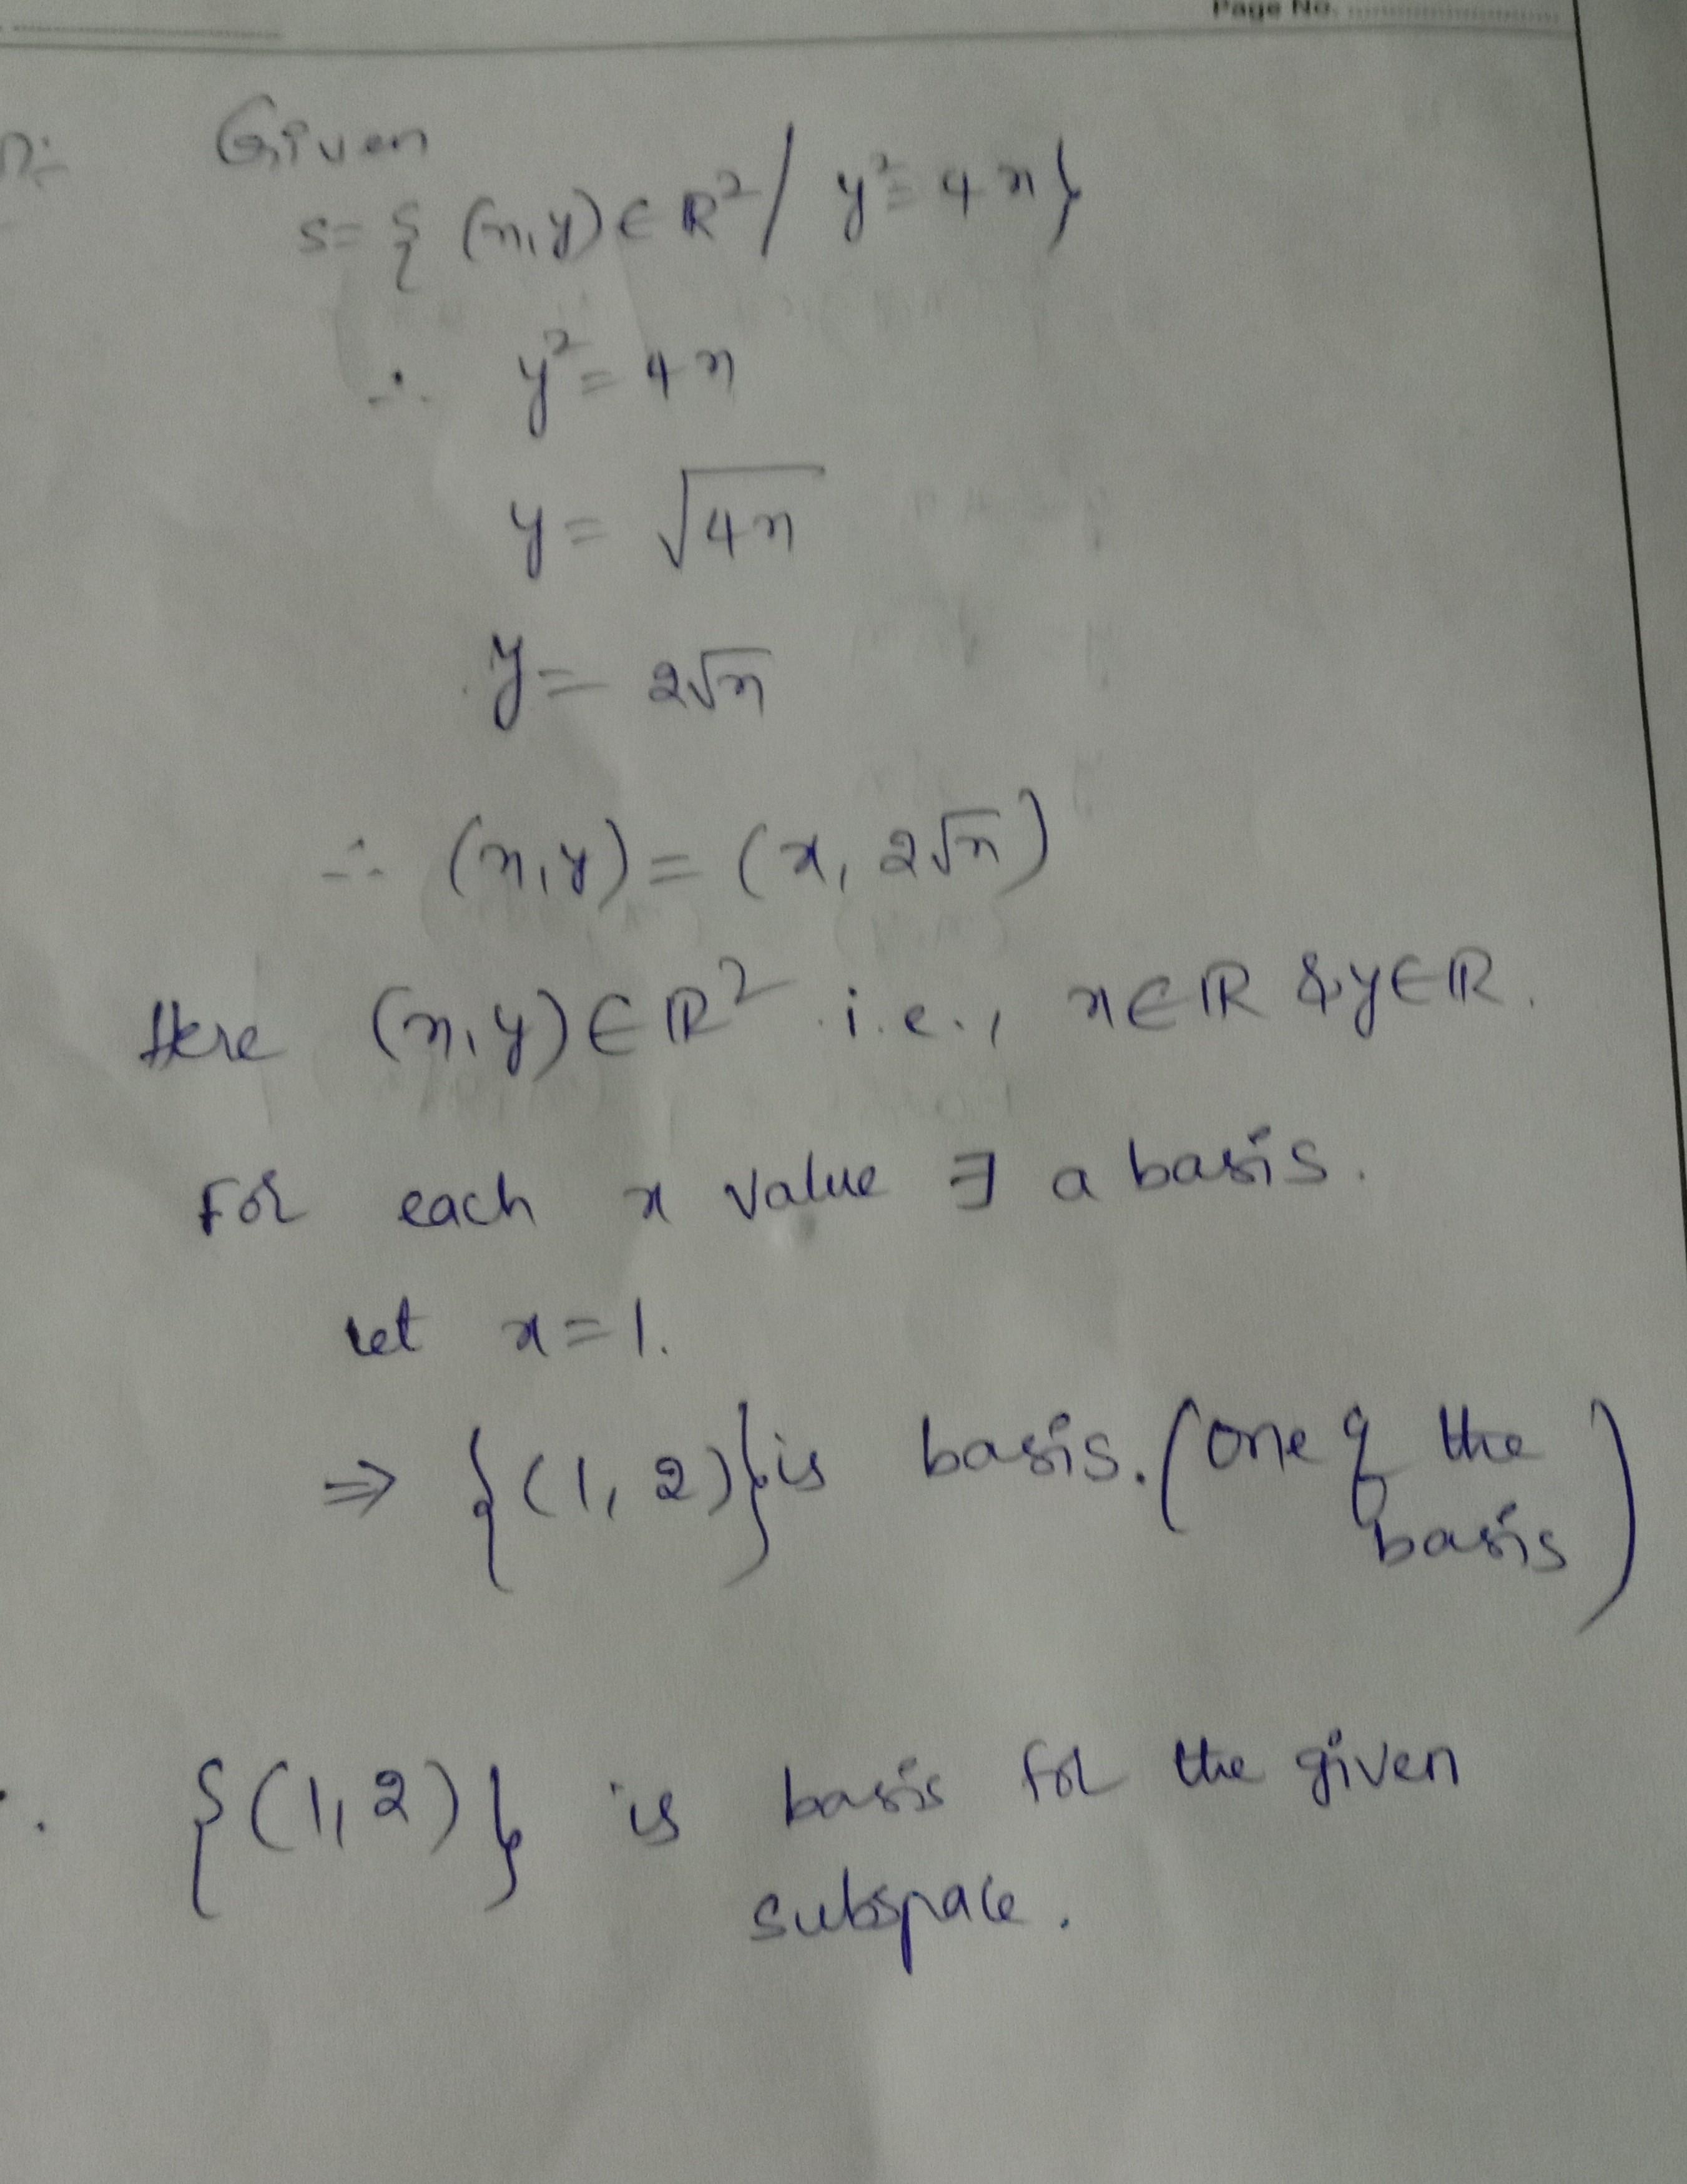 Page No.
Given
S= { (x,y) ∈ R² / y² = 4x }
∴ y² = 4x
y = √4x
y = 2√x
∴ (x,y) = (x, 2√x)
Here (x,y) ∈ R² i.e., x∈R & y∈R.
For each x value ∃ a basis.
let x=1.
⇒ {(1,2)} is basis. (one of the
basis)
∴ {(1,2)} is basis for the given
subspace.